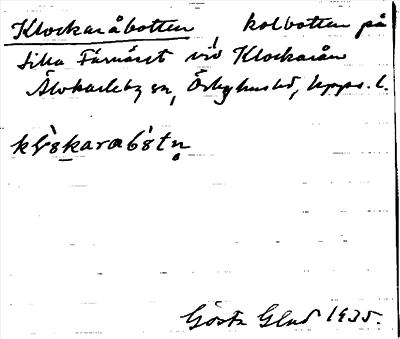 Klockaråbotten, kolbotten på
Lilla Färnäset vid Klockarån
Älvkarleby sn, Örbyhus hd, Upps. l.
Gösta Glad 1935.